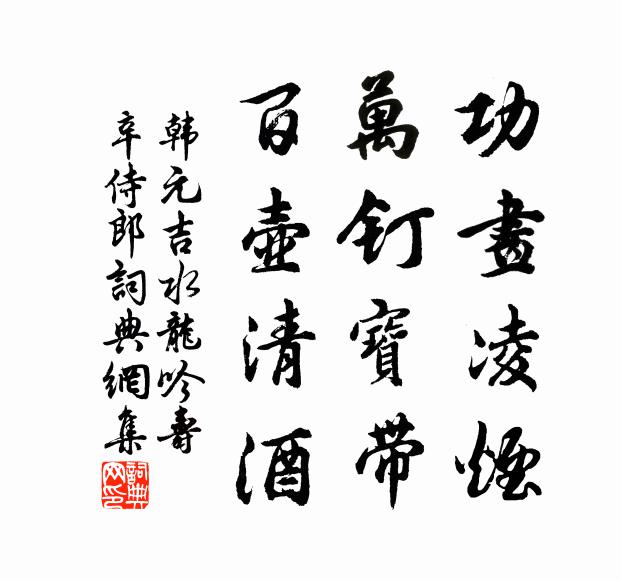 功畫凌煙
萬釘寶帶
百壺清酒
韩元吉水龍吟壽
辛侍郎詞典網集
詞典网印